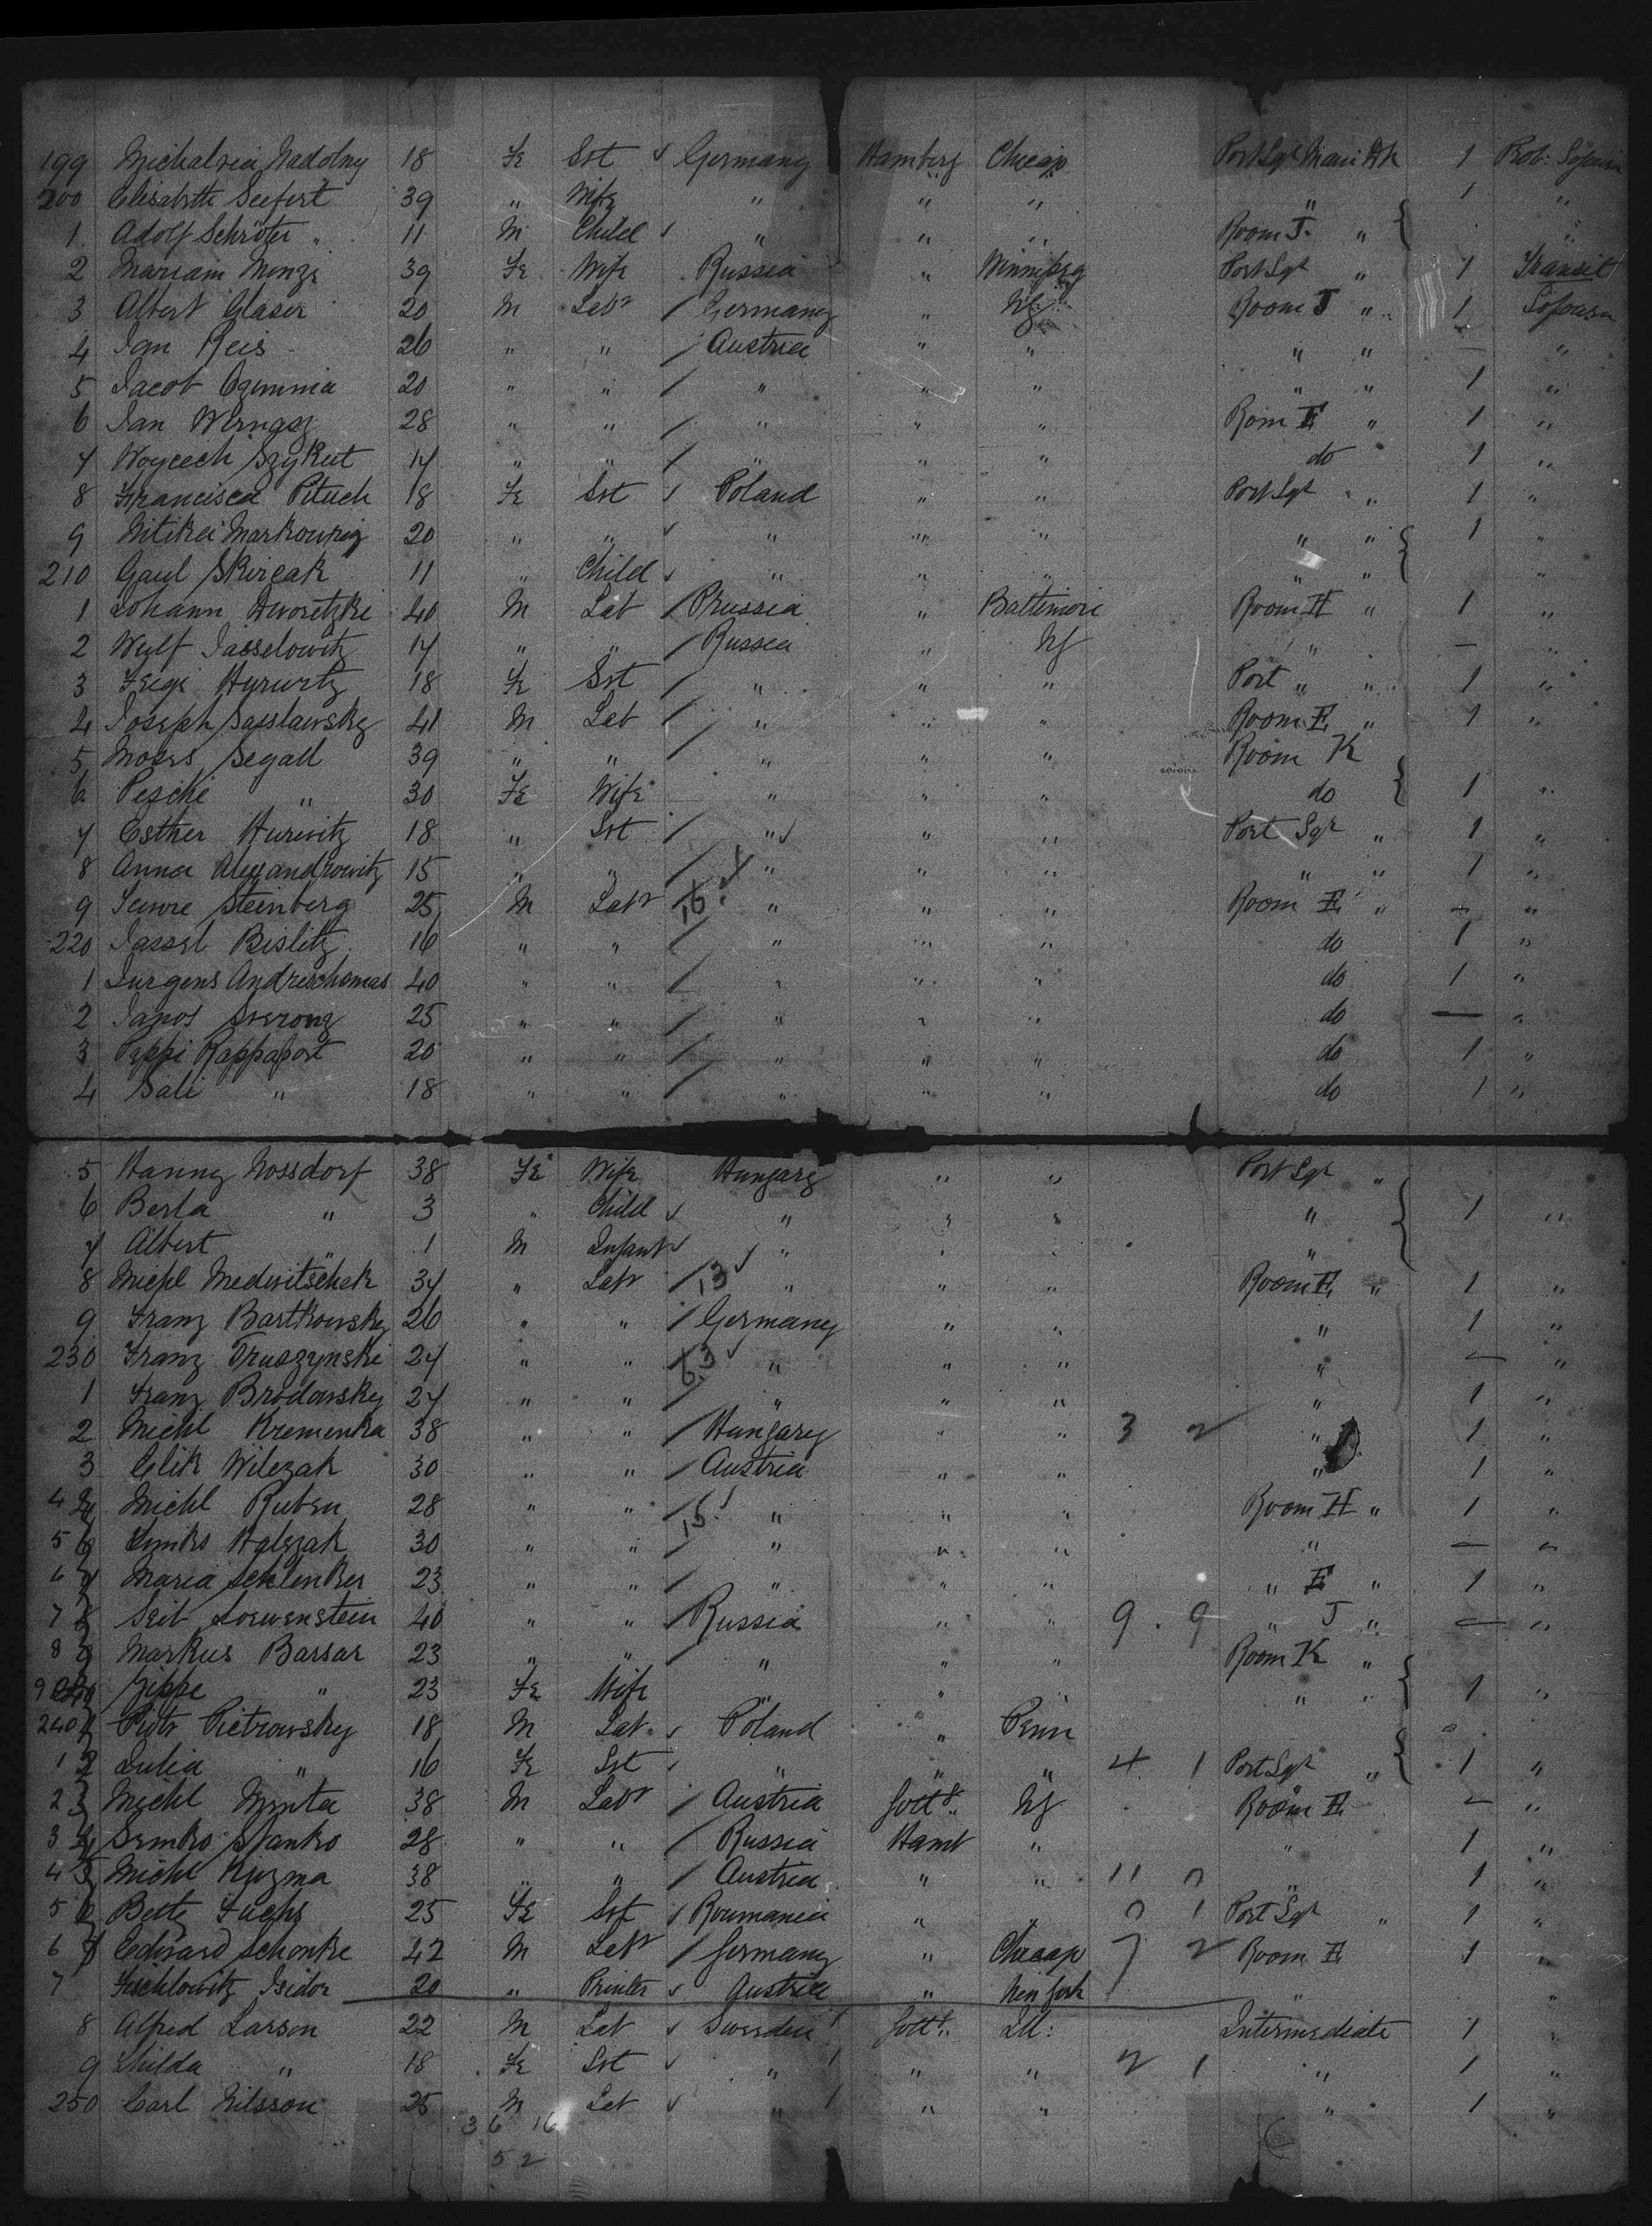 199 Nadolny 18 Fe Svt Germany Hamburg Chicago Port Sgt Main Dk 1
200 Elisabeth Seefert 39 " Wife " " " " 1 "
1 Adolf Schröter 11 M Child " " " Room J. " "
2 Mariam 39 Fe Wife Russia " Winnipeg Port Sgt " 1 Transit
3 Albert Glaser 20 M Labr / Germany " NY Room J " 1
4 Jan Reis 26 " " / Austria " " " " — "
5 Jacob 20 " " / " " " " " 1 "
6 Jan 28 " " / " " " Room E " 1 "
7 Woycech Szykut 17 " " / " " " do 1 "
8 Francisca Pituch 18 Fe Svt Poland " " Port Sgt " 1 "
9 20 " " " " " " " 1 "
210 11 " Child " " " " " "
1 Johann 40 M Lab / Prussia " Baltimore Room H " 1 "
2 Wulf Jasselowitz 17 " " / Russia " NY " — "
3 Feige Hurwitz 18 Fe Svt / " " " Port " " 1 "
4 Joseph Sasslawsky 41 M Lab / " " " Room E " 1 "
5 Moses Segall 39 " " / " " " Room K
6 Pesche " 30 Fe Wife " " " do 1 "
7 Esther Hurwitz 18 " Svt / " " " Port Sgt " 1 "
8 Anna Alexandrowitz 15 " " / " " " " " 1 "
9 Steinberg 25 M Labr / 16 " " " Room E " — "
220 Jassel Bislitz 16 " " / " " " do 1 "
1 Jurgens Andreschomas 40 " " / " " " do 1 "
2 25 " " / " " " do — "
3 Peppi Rappaport 20 " " / " " " do 1 "
4 Sali " 18 " " / " " " do 1 "
5 Hanny Mossdorf 38 Fe Wife Hungary " " Port Sgt "
6 Berta " 3 " Child " " " " 1 "
7 Albert " 1 M Infant " " " "
8 Michl Medwitschek 37 " Labr / 13 " " " Room E " 1 "
9 Franz Bartkowsky 26 " " / Germany " " " 1 "
230 Franz Truszynski 27 " " / 63 " " " " — "
1 Franz Brodowsky 27 " " / " " " " 1 "
2 Michl Kremenka 38 " " / Hungary " " 3 2 " 1 "
3 Wilczak 30 " " / Austria " " " 1 "
4 Michl Ruben 28 " " / 15 " " " Room H " 1 "
5 Halszak 30 " " / " " " " — "
6 Maria Schlenker 23 " " / " " " " E " 1 "
7 Loewenstein 40 " " / Russia " " 9 . 9 " J " — "
8 Markus Barsar 23 " " / " " " Room K "
9 Zippe " 23 Fe Wife " " " " " 1 "
240 Piotr Pietrowsky 18 M Lab Poland " Penn
1 Julia " 16 Fe Svt " " " 4 1 Port Sgt " 1 "
2 Michl 38 M Labr / Austria Gottg NY Room E — "
3 Semko Stanko 28 " " / Russia Hamb " " 1 "
4 Michl Kuzma 38 " " / Austria " " 11 " 1 "
5 Betty Fuchs 25 Fe Svt Roumania " " 1 Port Sgt " 1 "
6 Edward Schonke 42 M Labr / Germany " Chicago 7 2 Room E 1 "
7 Fischlowitz Isidor 20 " Printer Austria " New York " "
8 Alfred Larson 22 M Lab Sweden Gottg Ill: Intermediate 1 "
9 Hilda " 18 Fe Svt " " " 2 1 " 1 "
250 Carl Nilsson 25 M Lab " " " " 1 "
36 16
52